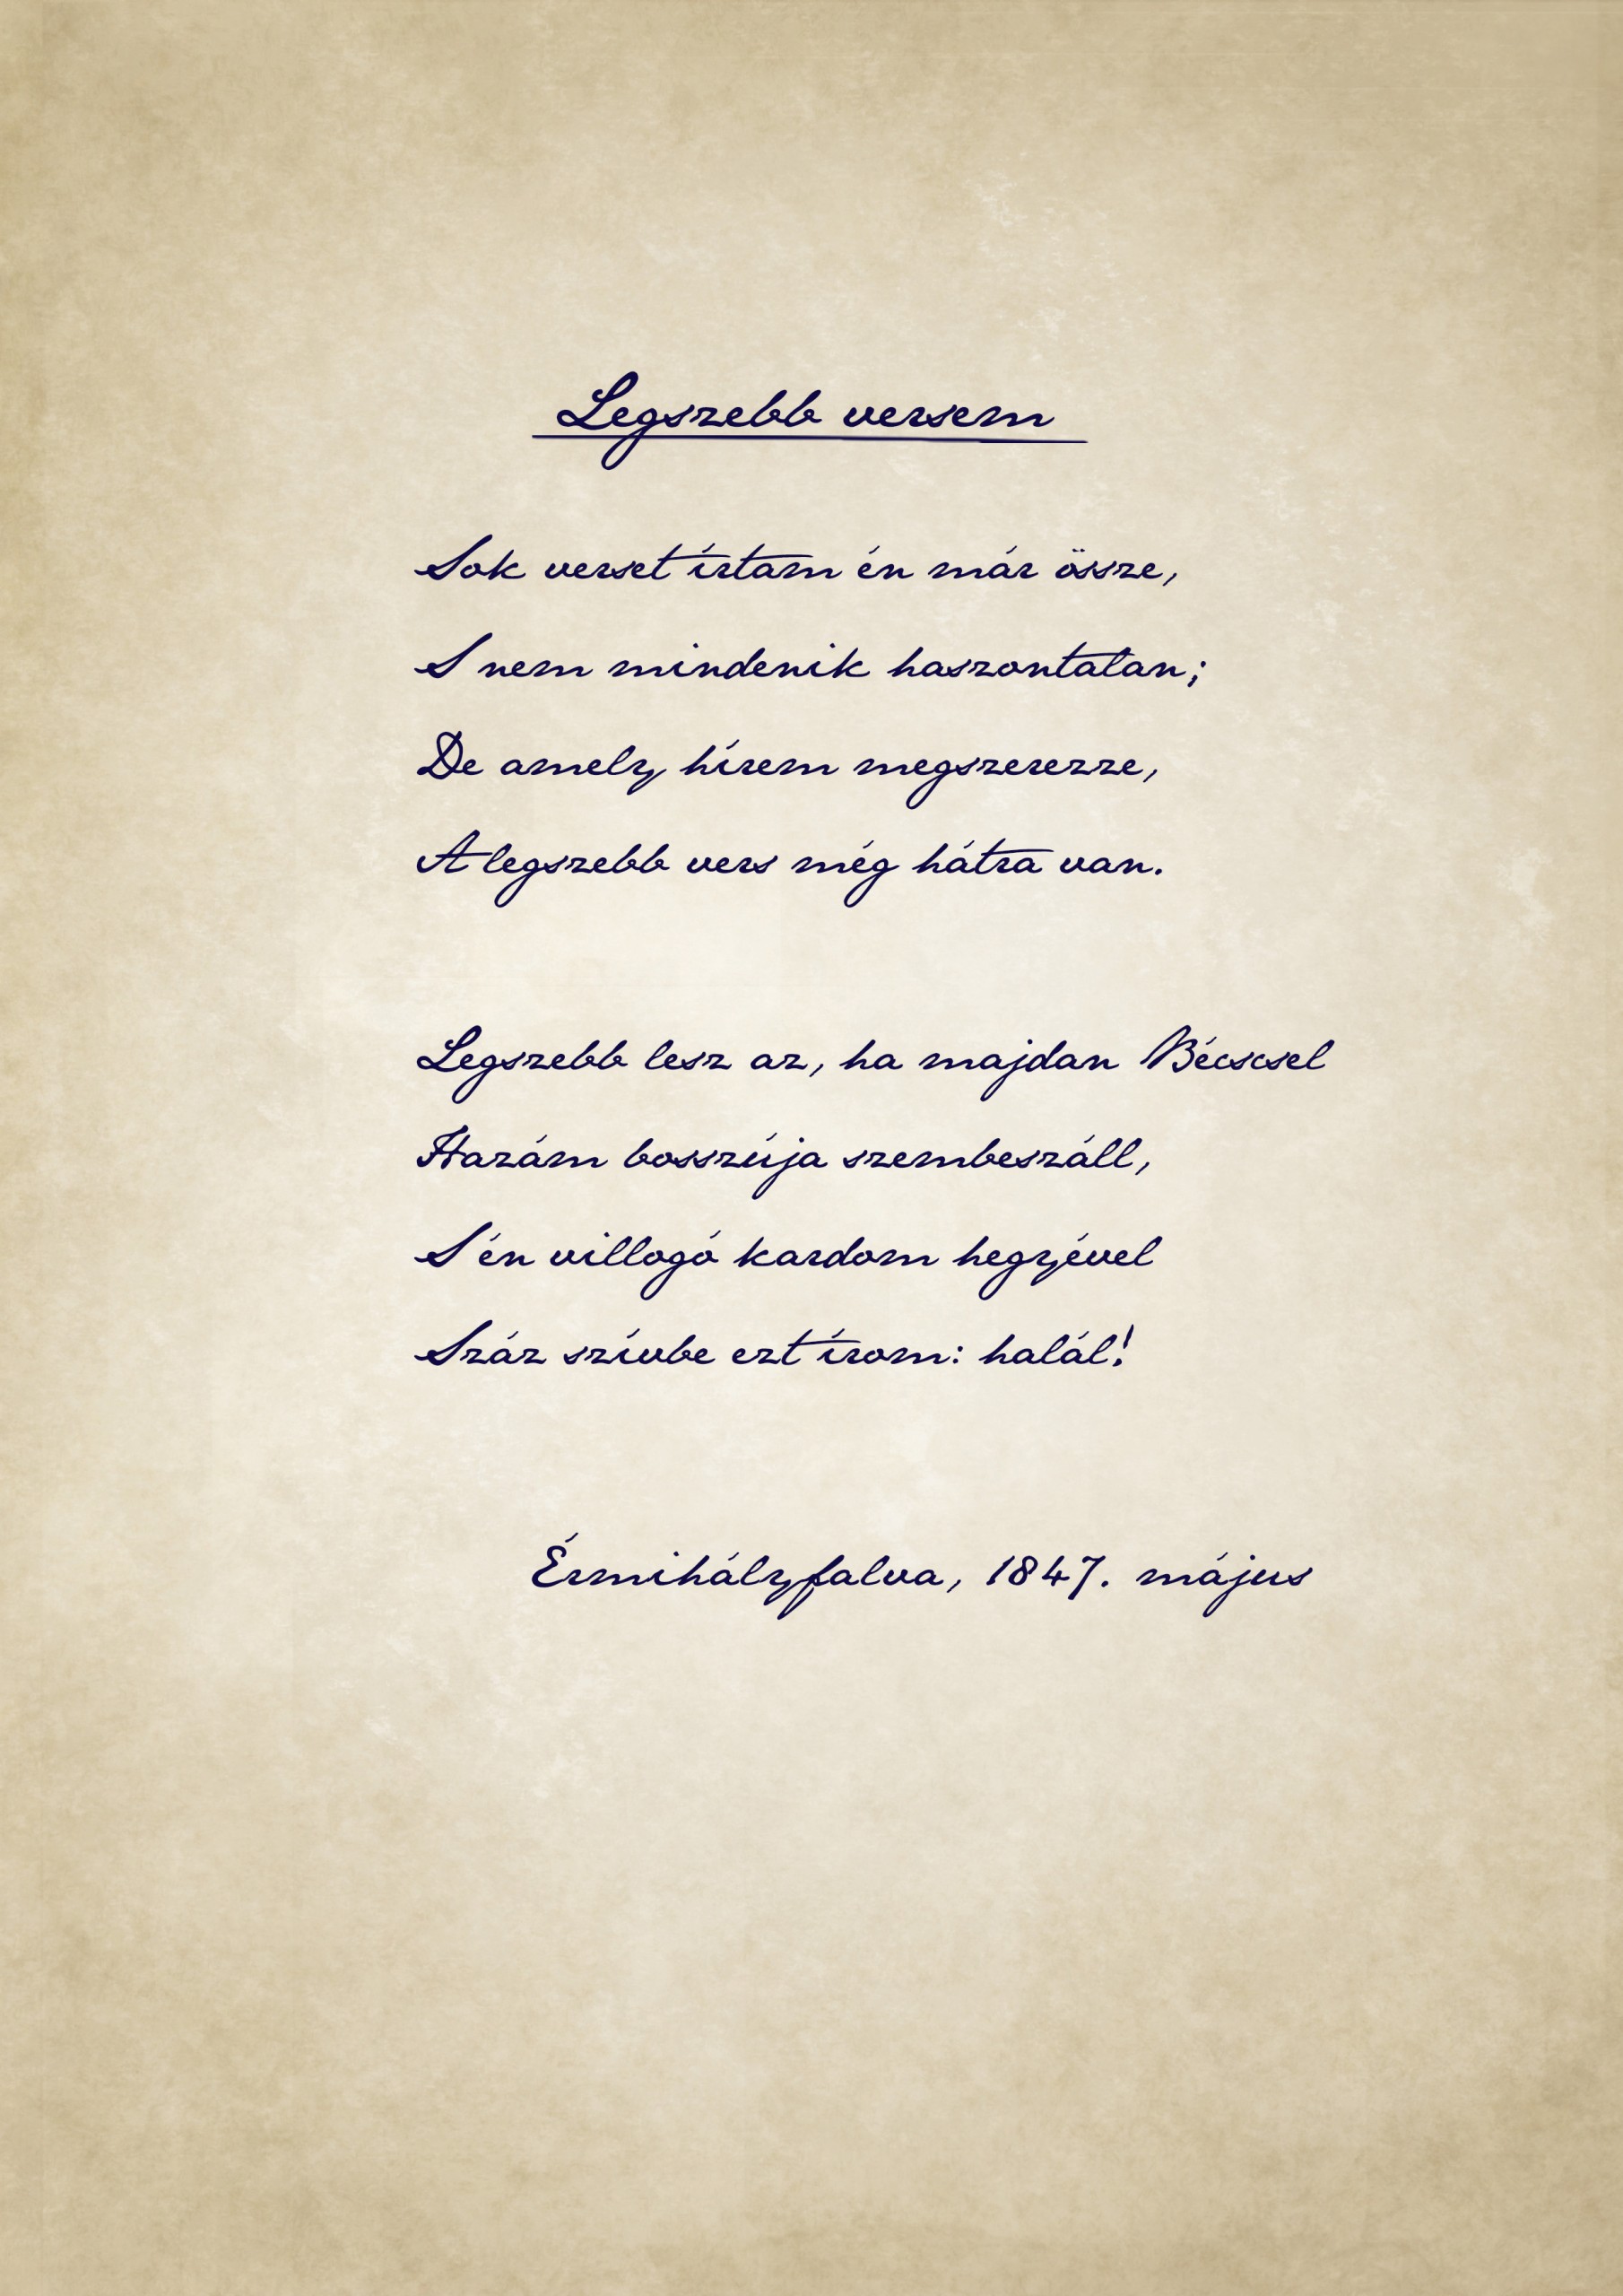 Legszebb versem
Sok verset írtam én már össze,
S nem mindenik haszontalan;
De amely hírem megszerezze,
A legszebb vers még hátra van.
Legszebb lesz az, ha majdan Bécscsel
Hazám bosszúja szembeszáll,
S én villogó kardom hegyével
Száz szívbe ezt írom: halál!
Érmihályfalva, 1847. május